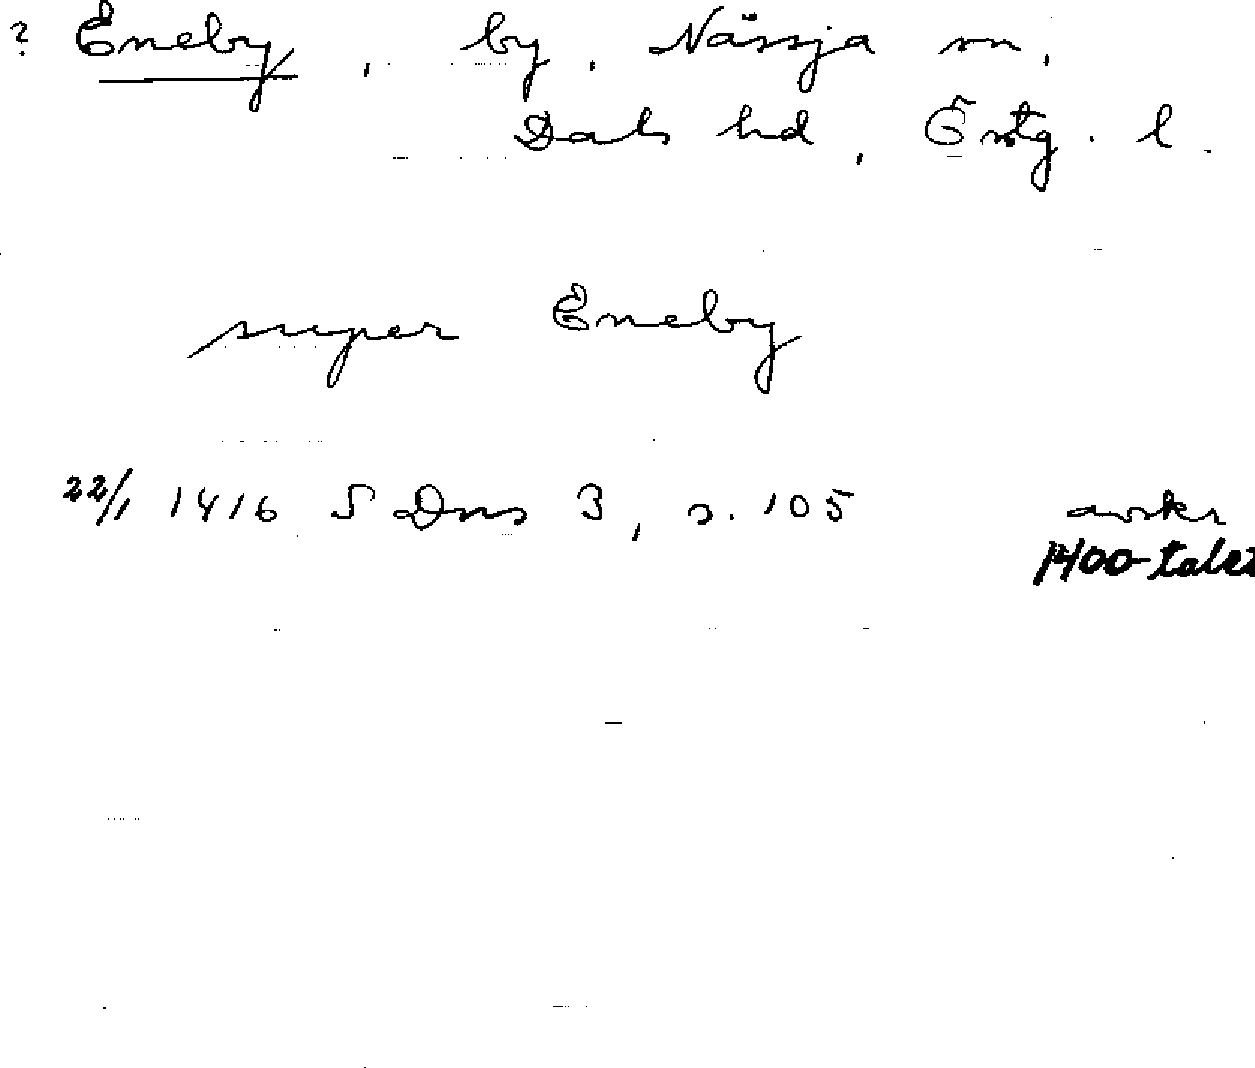 ? Eneby, by, Nässja sn,
Dals hd, Östg. l.
super Eneby
22/1 1416 SDns 3, s. 105 avskr
1400-talet